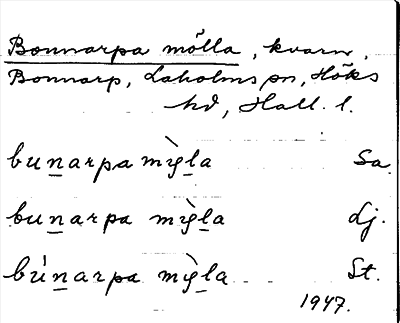 Bonnarpa mölla, kvarn,
Bonnarp, Laholms sn, Höks
hd, Hall. l.
bun̲arpa mỳl̲a Sa.
bun̲arpa mỳl̲a Lj.
bún̲arpa mỳl̲a St.
1947.